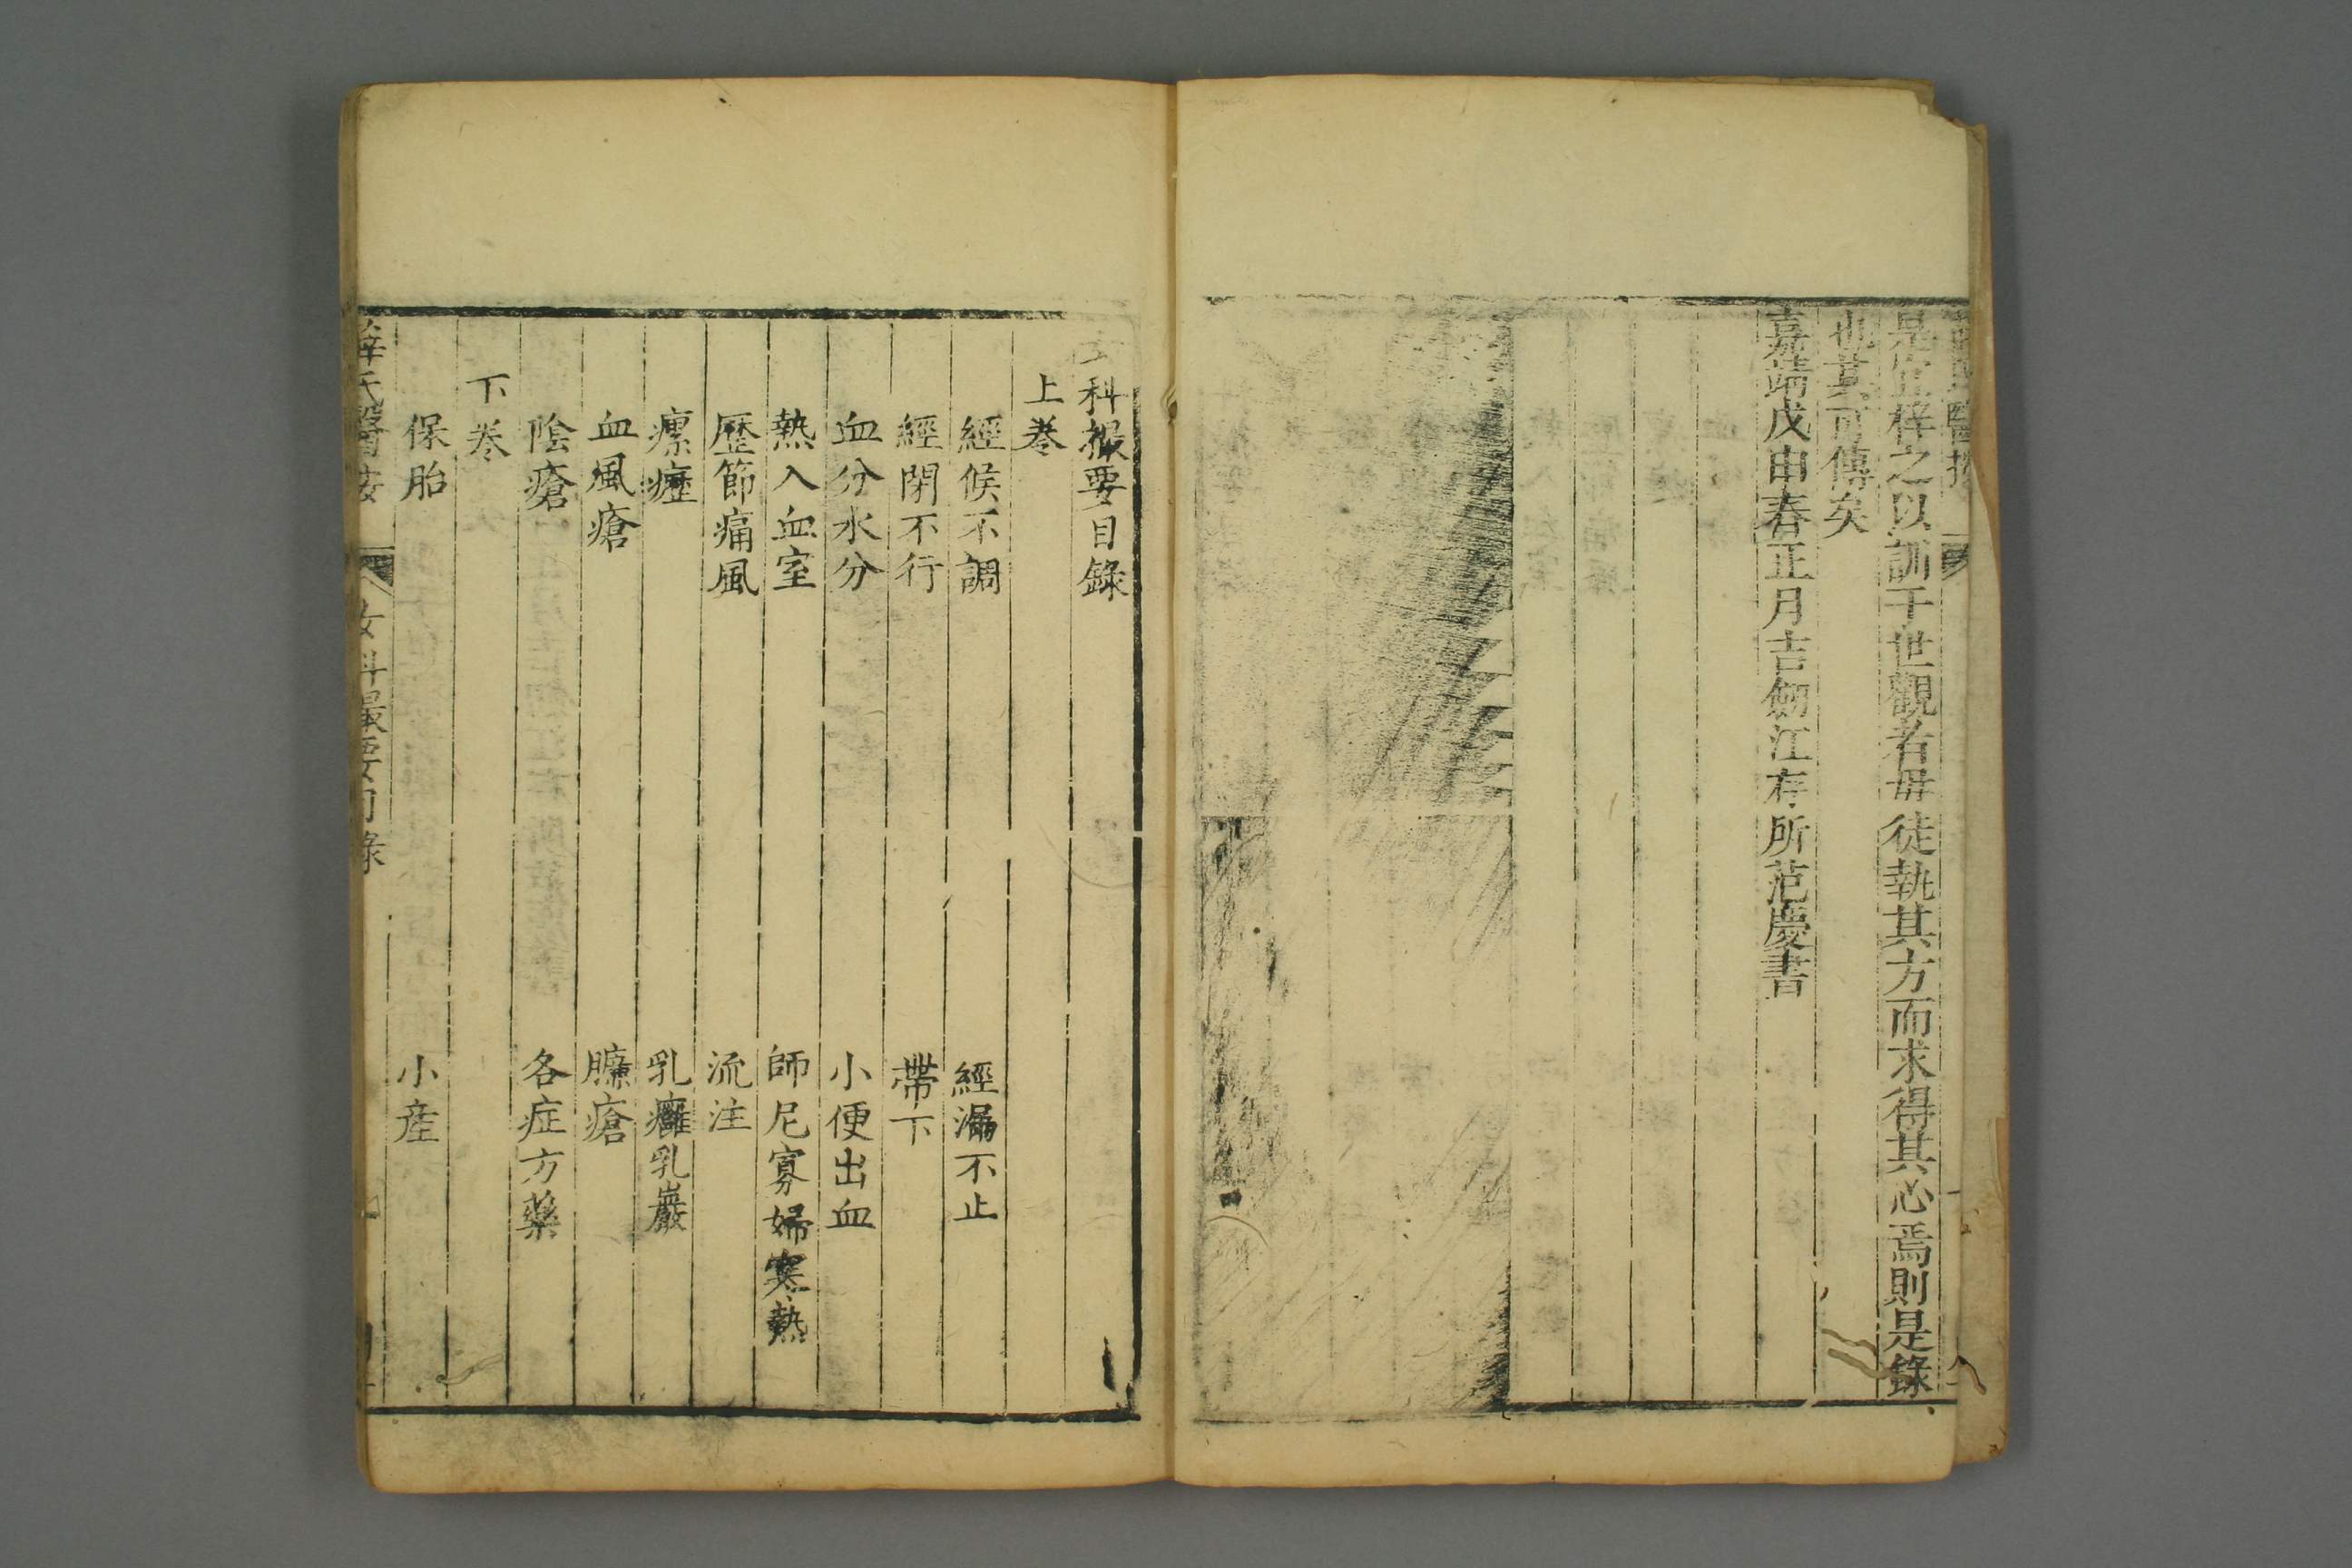 是宜梓之以訓于世觀者毋徒執其方而求得其心焉則是錄
也其可傳矣
嘉靖戊申春正月吉劒江存所范慶書
科撮要目錄
上卷
經候不調 經漏不止
經閉不行 帶下
血分水分 小便出血
熱入血室 師尼寡婦寒熱
歷節痛風 流注
瘰癧 乳癰乳巖
血風瘡 臁瘡
陰瘡 各症方藥
下卷
保胎 小産
薛氏醫 女科撮要目錄